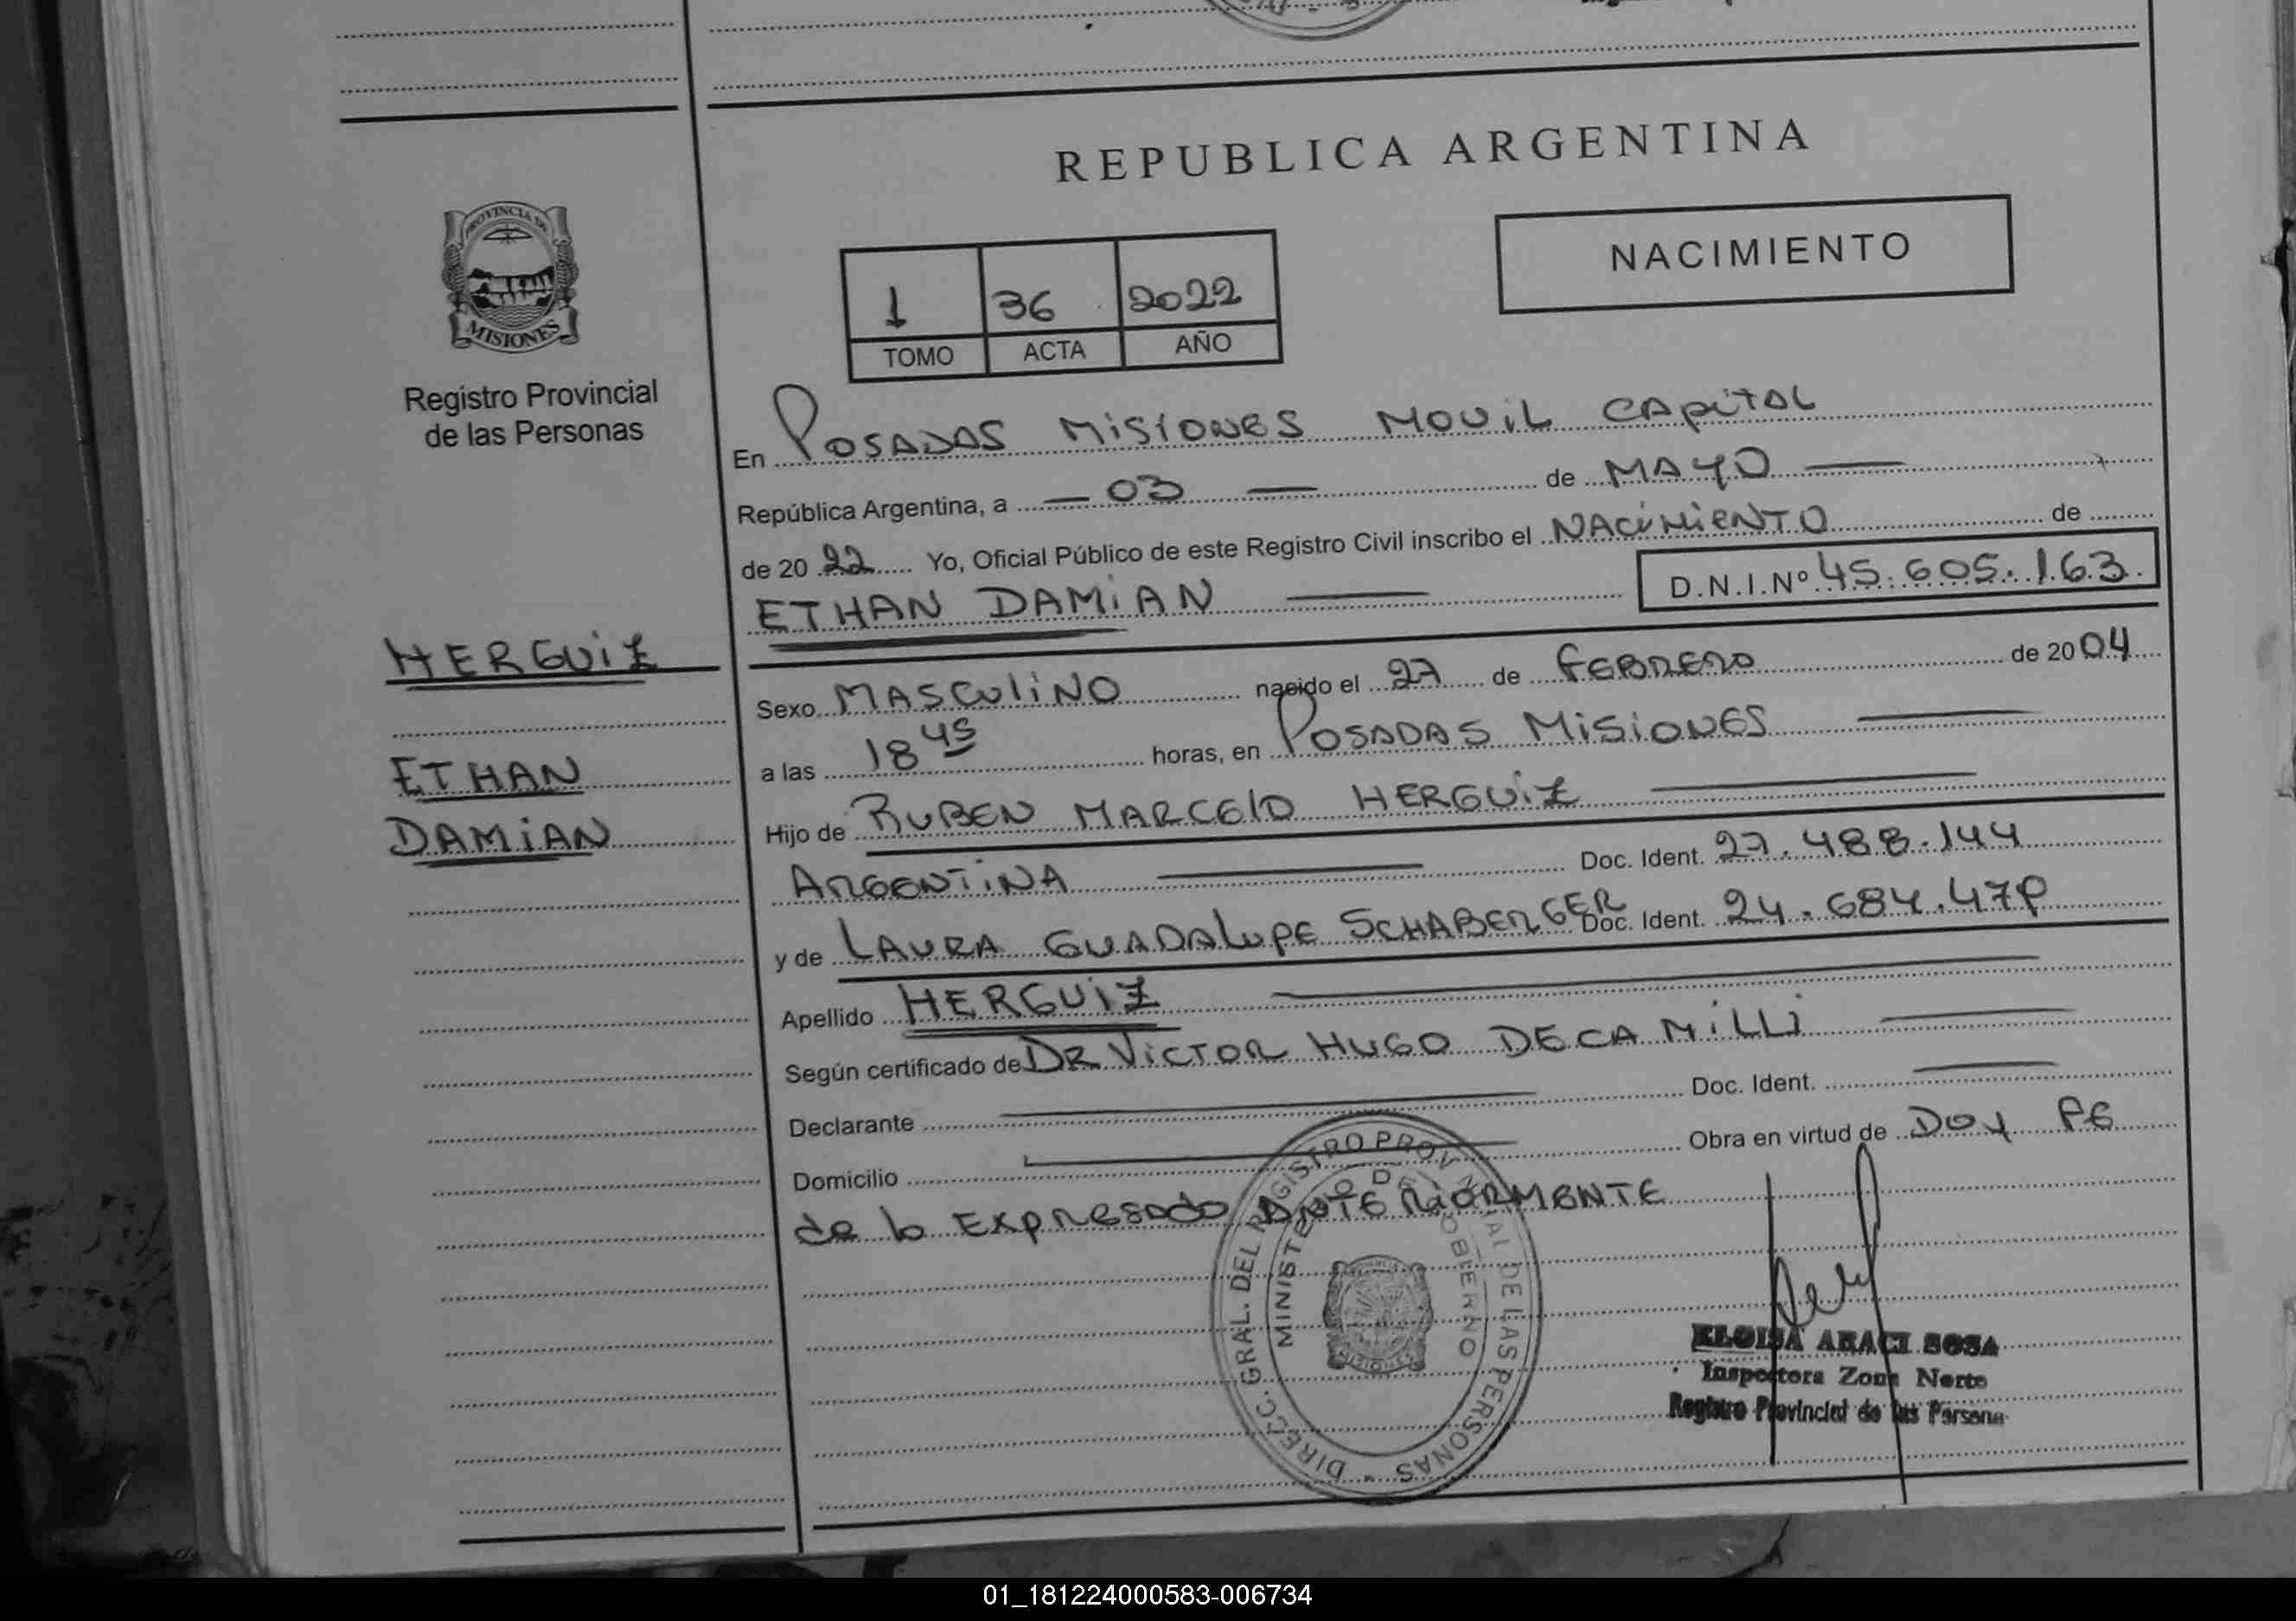 REPUBLICA ARGENTINA
NACIMIENTO
1 36 2022
TOMO ACTA AÑO
PROVINCIA DE
MISIONES
Registro Provincial
de las Personas
En POSADAS MISIONES MOVIL CAPITAL
República Argentina, a — 03 — de MAYO —
de 20 22 Yo, Oficial Público de este Registro Civil inscribo el NACIMIENTO de
ETHAN DAMIAN — D.N.I.Nº 45.605.163
HERGUIZ
ETHAN
DAMIAN
Sexo MASCULINO nacido el 27 de FEBRERO de 2004
a las 18 45 horas, en POSADAS MISIONES —
Hijo de RUBEN MARCELO HERGUIZ —
ARGENTINA — Doc. Ident. 27.488.144
y de LAURA GUADALUPE SCHABERGER Doc. Ident. 24.684.47
Apellido HERGUIZ —
Según certificado de DR VICTOR HUGO DECAMILLI —
Declarante — Doc. Ident. —
Domicilio — Obra en virtud de DOY FE
de lo EXPRESADO ANTERIORMENTE
DIRECC. GRAL. DEL REGISTRO PROVINCIAL DE LAS PERSONAS
MINISTERIO DE GOBIERNO
MISIONES
ELOISA ARACI SOSA
Inspectora Zona Norte
Registro Provincial de las Persona
01_181224000583-006734